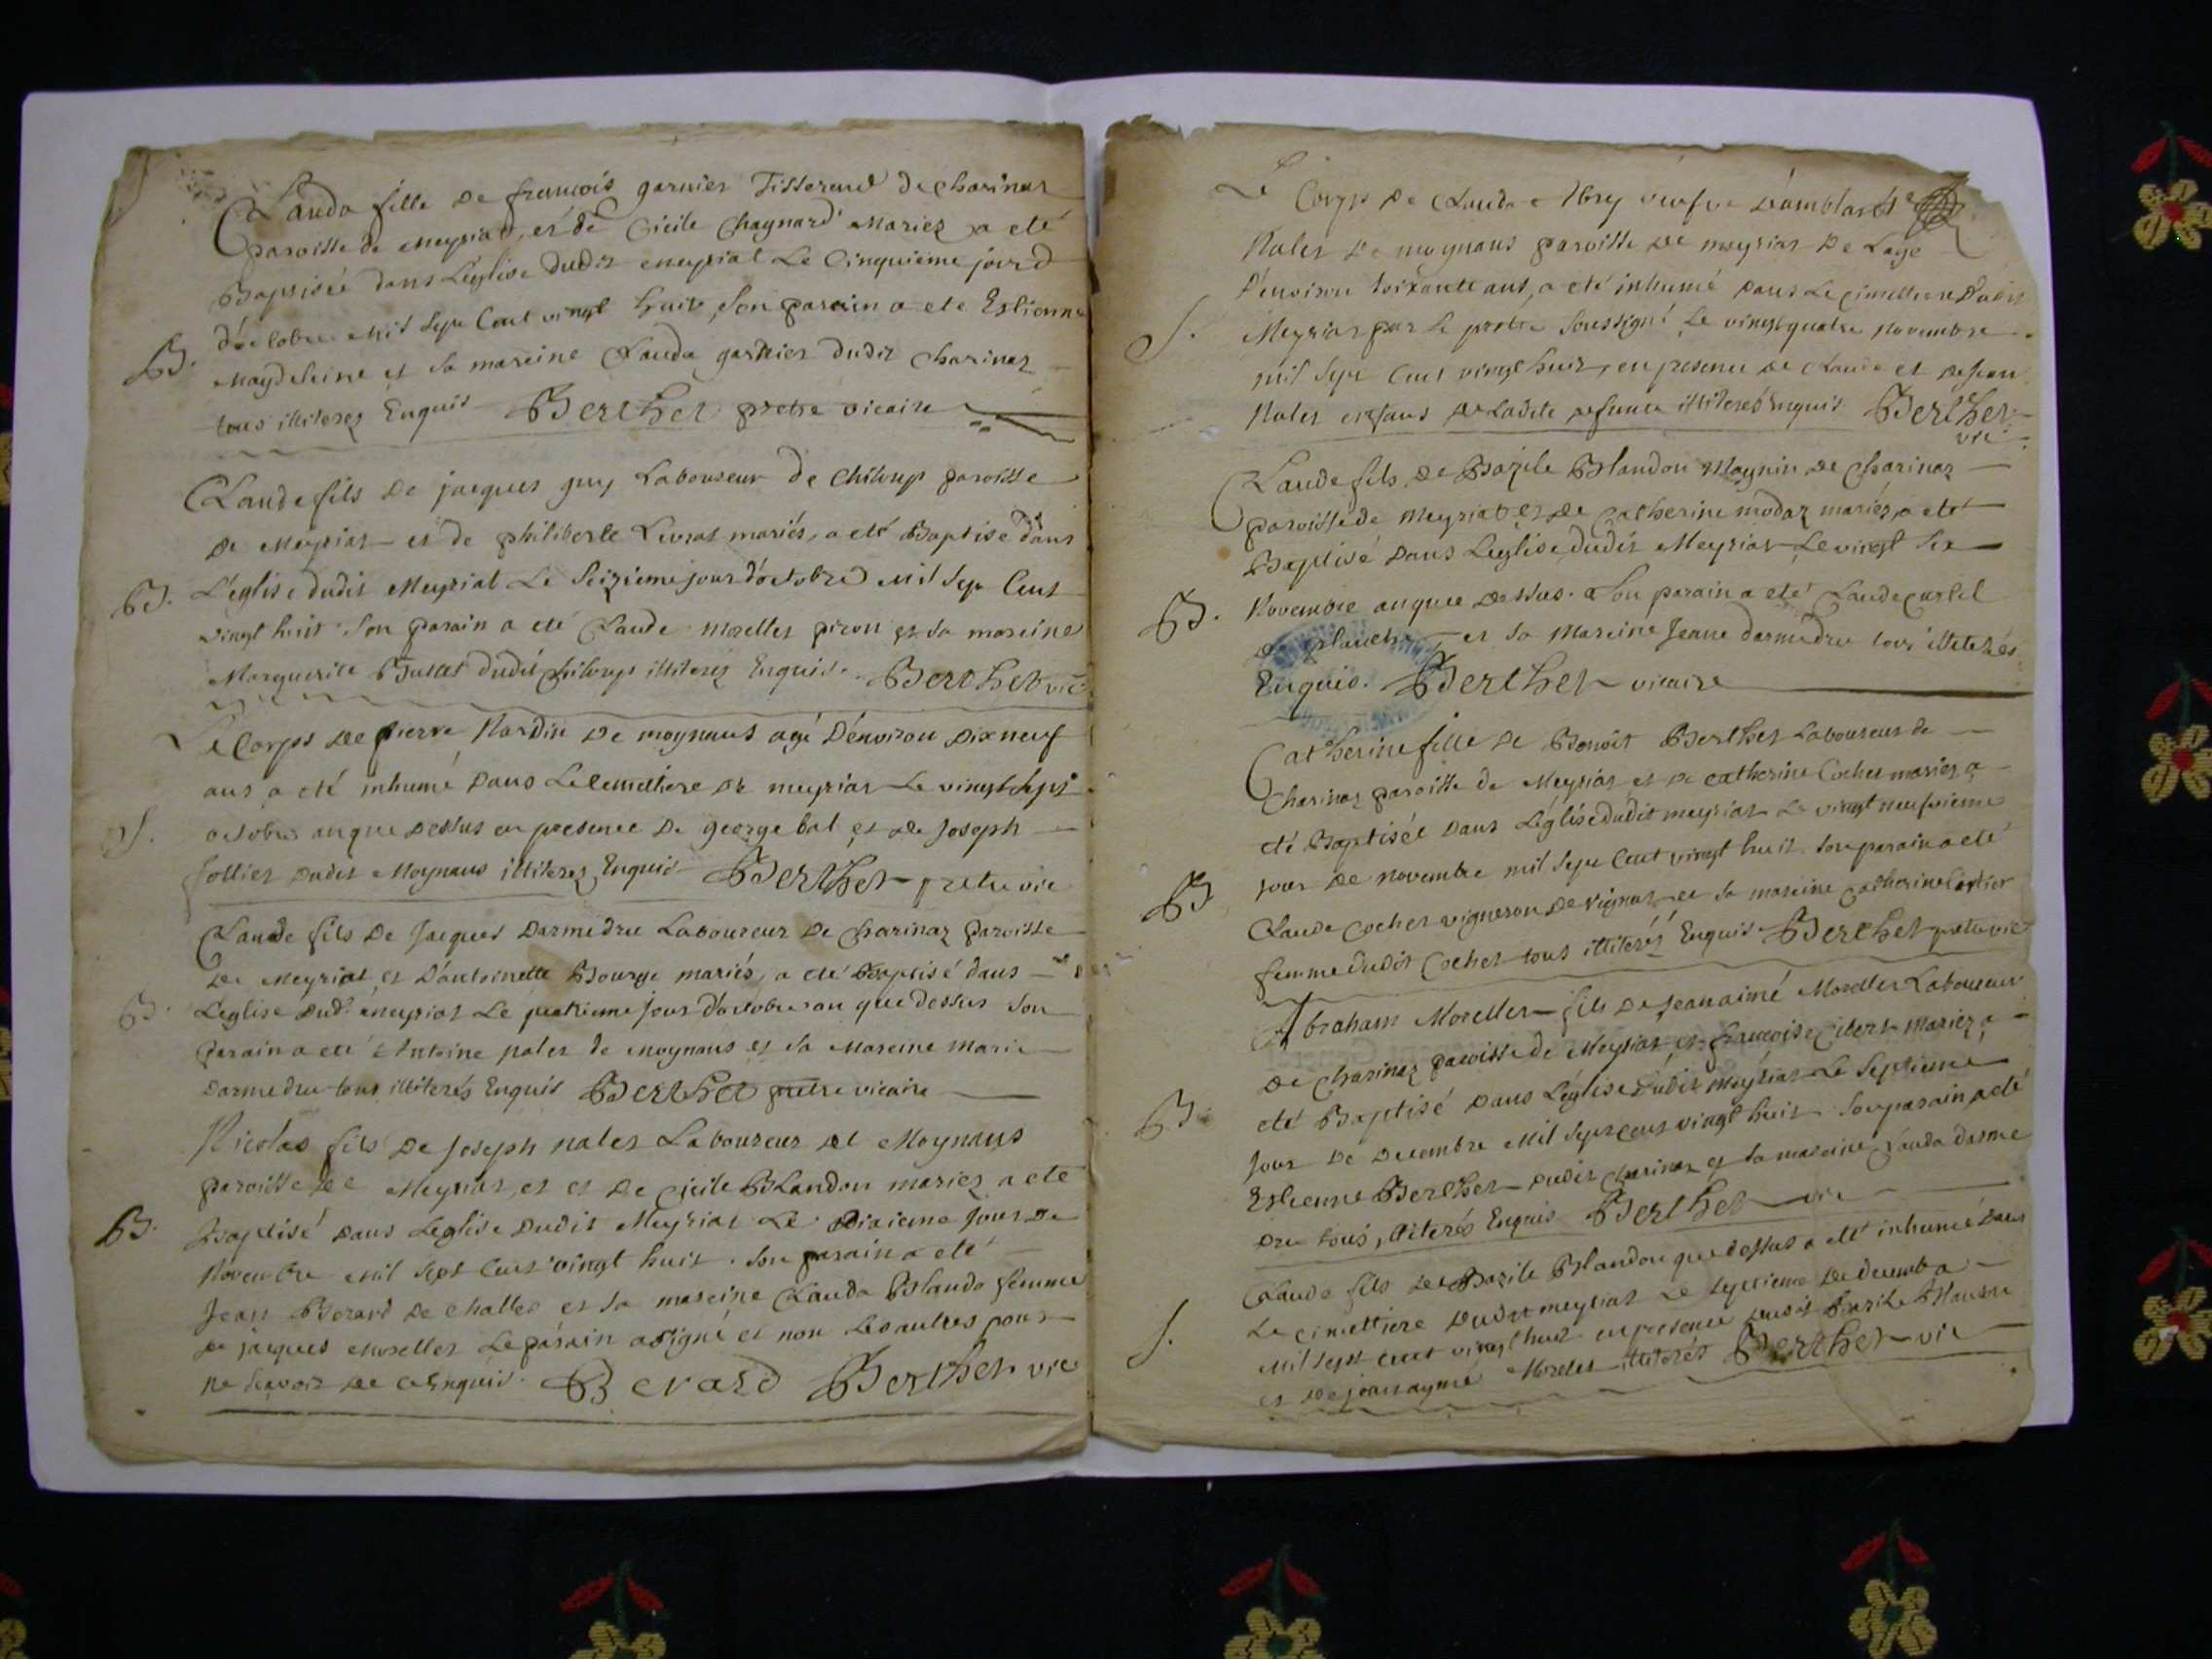 Clauda fille de françois garnier Tisserand de Charinas
paroisse de meyriat, et de Cicile Chagnard mariez a eté
Baptisée dans L'église dudit meyriat Le Cinquieme jour d
d'octobre mil sept Cent vingt huit, son parain a ete Estienne
B. Magdeleine et sa mareine Clauda garnier dudit Charinaz
tous illiterez Enquis Berthet pretre vicaire
Claude fils de jacques guy Laboureur de Chiloup paroisse
de Meyriat et de philiberte Livrat mariés, a eté Baptisé dans
B. L'église dudit Meyriat Le Seizieme jour d'octobre mil sept Cent
vingt huit son parain a eté Claude morellet piron et sa mareine
Marguerite Bullet dudit Chiloup illiterez Enquis. Berthet vic
Le Corps de pierre Nardin de moynans agé D'environ Dix neuf
ans a eté inhumé dans Le Cemetiere de meyriat Le vingt sept
S. octobre an que dessus en presence de george bal et de Joseph
follier dudit Moynans illiterez Enquis Berthet pretre vic
Claude fils de Jacques Darmedru Laboureur de Charinaz paroisse
de Meyriat et D'antoinette Bourge mariés, a eté Baptisé dans
B. L'eglise dud' meyriat Le quatrieme jour d'octobre an que dessus son
parain a eté Antoine nalet de moynans et sa Mareine marie
Darmedru tous illiterés Enquis Berthet pretre vicaire
Nicolas fils de Joseph nalet Laboureur de Moynans
paroisse de Meyriat, et et de Cicile Blandon mariez a ete
B. Baptisé dans Leglise dudit Meyriat Le dixieme jour de
Novembre mil sept cent vingt huit. Son parain a eté
Jean Berard de Challes et sa mareine Clauda Blando femme
de jacques morellet Le parain a signé et non Les autres pour
ne sçavoir de ce Enquis. Berard Berthet vic
Le Corps de Clauda veufve
Nalet de moynans paroisse de meyriat de Lage
D'environ soixante ans, a eté inhumé dans Le cimettiere dudit
S. Meyriat par Le pretre soussigné Le vingt quatre novembre
mil sept Cent vingt huit, en presence de Claude et de Jean
Nalet enfans de Ladite defunte illiterés Enquis Berthet
vic
Claude fils de Bazile Blandon de Charinaz
paroisse de Meyriat et de Catherine modaz mariéz a eté
Baptisé dans Leglise dudit Meyriat Le vingt six
B. Novembre an que dessus. Son parain a eté Claude Curtel
et sa Mareine Jeane darmedru tous illiterés
Enquis. Berthet vicaire
Catherine fille de Benoit Berthet Laboureur de
Charinaz paroisse de Meyriat et de catherine Cochet mariez a
eté Baptisée dans L'églisedudit meyriat Le vingt neufvieme
B jour de novembre mil sept Cent vingt huit son parain a eté
Claude Cochet vigneron de et sa mareine Catherine
femme dudit Cochet tous illiterés Enquis Berthet pretre vic
Abraham Morellet fils de Jean aimé Morellet Laboureur
de Charinaz paroisse de Meyriat et françoise mariez a
B. eté Baptisé dans L'église dudit Meyriat Le septieme
jour de Decembre mil sept cent vingt huit son parain a eté
Estienne Berthet dudit Charinaz et sa mareine Clauda darme
dru tous illiterés Enquis Berthet vic
Claude fils de Bazile Blandon que dessus a eté inhumé dans
Le cimettiere dudit meyriat Le septieme de decembre
S. mil sept cent vingt huit en presence dudit Bazile Blandon
et de jean aymé Morellet illiterés Berthet vic